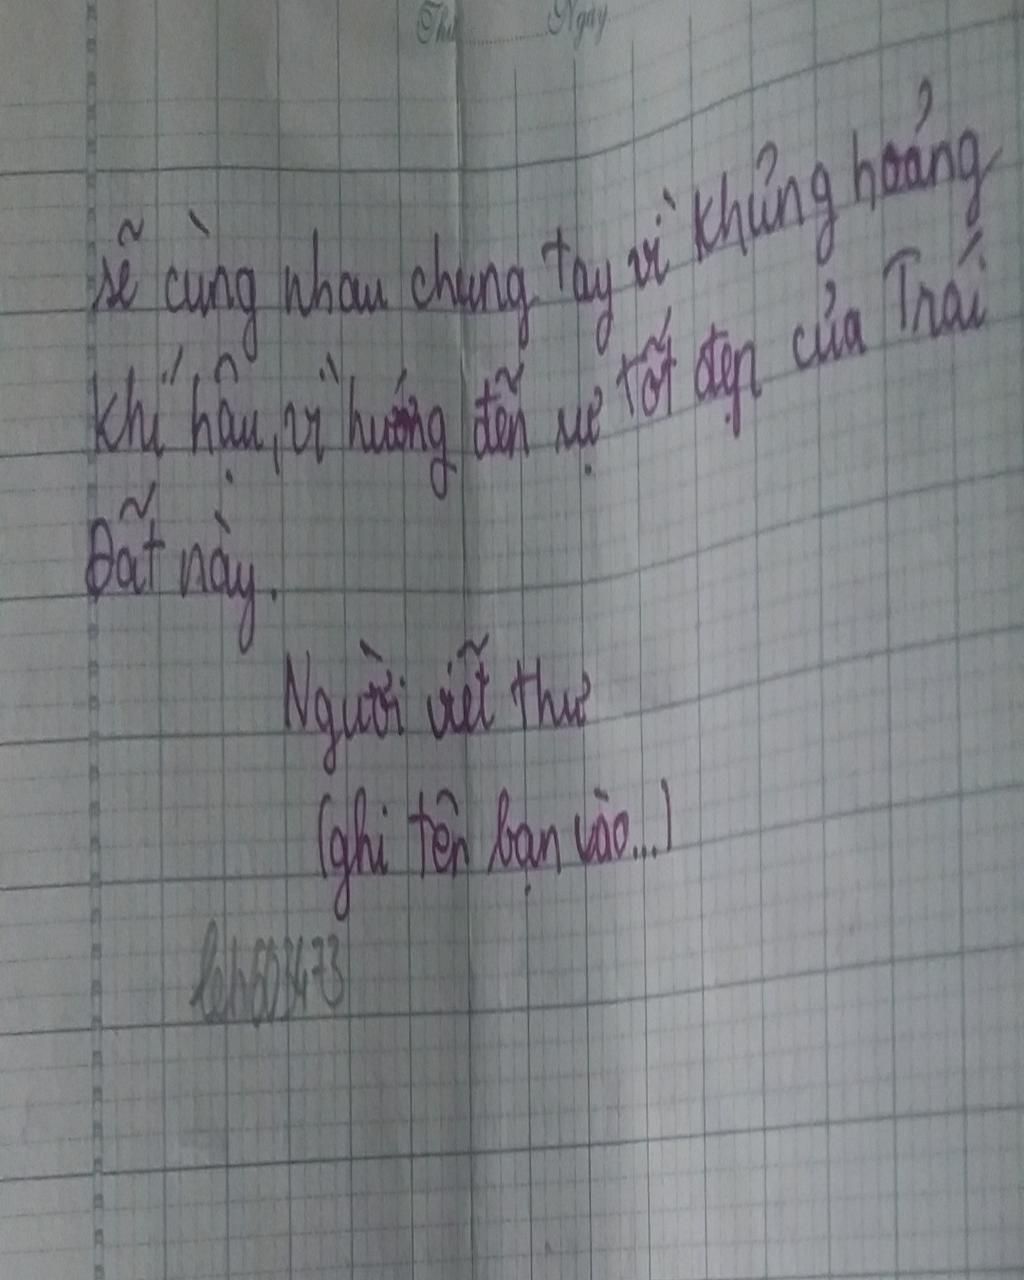 Thứ Ngày
sẽ cùng nhau chung tay vì khủng hoảng
khí hậu, vì hướng đến sự tốt đẹp của Trái
Đất này.
Người viết thư
(ghi tên bạn vào...)